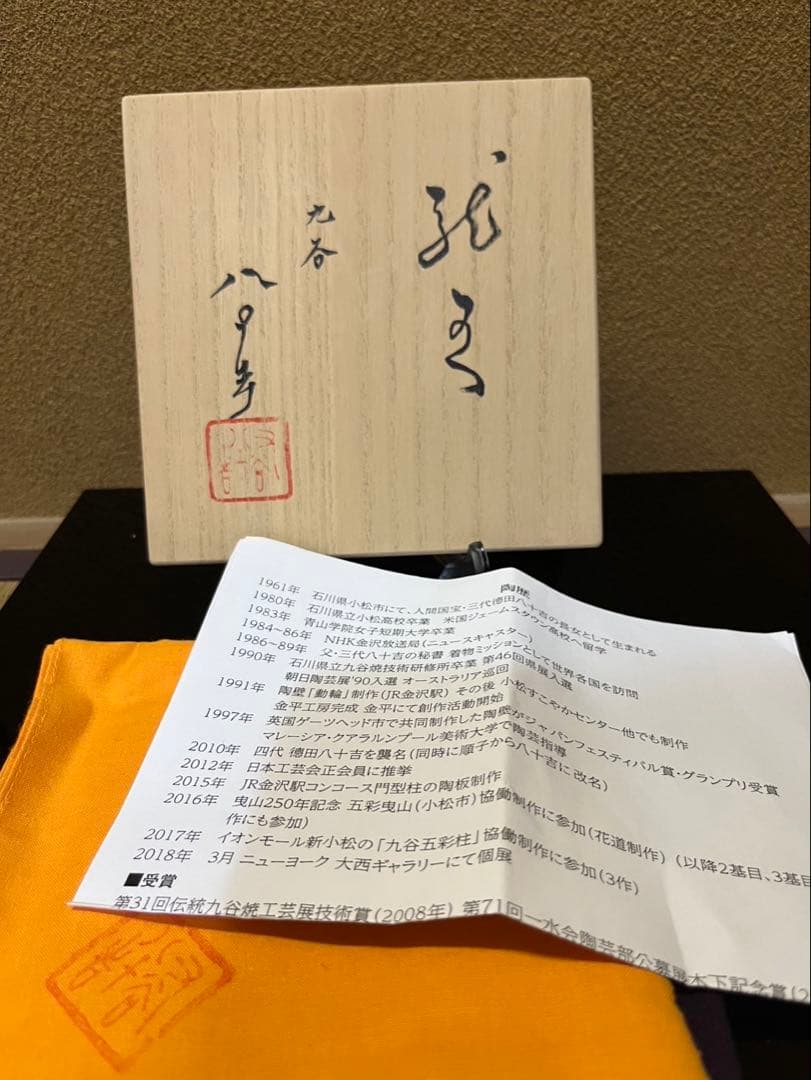 九谷
八十吉
陶歴
1961年 石川県小松市にて、人間国宝・三代徳田八十吉の長女として生まれる
1980年 石川県立小松高校卒業 米国ジェームスタウン高校へ留学
1983年 青山学院女子短期大学卒業
1984~86年 NHK金沢放送局(ニュースキャスター)
1986~89年 父・三代八十吉の秘書 着物ミッションとして世界各国を訪問
1990年 石川県立九谷焼技術研修所卒業 第46回県展入選
朝日陶芸展'90入選 オーストラリア巡回
1991年 陶壁「動輪」制作(JR金沢駅) その後 小松すこやかセンター他でも制作
金平工房完成 金平にて創作活動開始
1997年 英国ゲーツヘッド市で共同制作した陶壁がジャパンフェスティバル賞・グランプリ受賞
マレーシア・クアラルンプール美術大学で陶芸指導
2010年 四代 徳田八十吉を襲名(同時に順子から八十吉に改名)
2012年 日本工芸会正会員に推挙
2015年 JR金沢駅コンコース門型柱の陶板制作
2016年 曳山250年記念 五彩曳山(小松市)協働制作に参加(花道制作) (以降2基目、3基目
作にも参加)
2017年 イオンモール新小松の「九谷五彩柱」協働制作に参加(3作)
2018年 3月 ニューヨーク 大西ギャラリーにて個展
■受賞
第31回伝統九谷焼工芸展技術賞(2008年) 第71回一水会陶芸部公募展木下記念賞(2